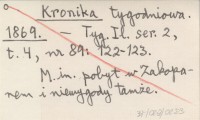 Kronika tygodniowa.
1869. — Tyg. Il. ser. 2,
t. 4, nr 89: 122-123.
M. in. pobyt w Zakopa-
nem i niewygody tamże.